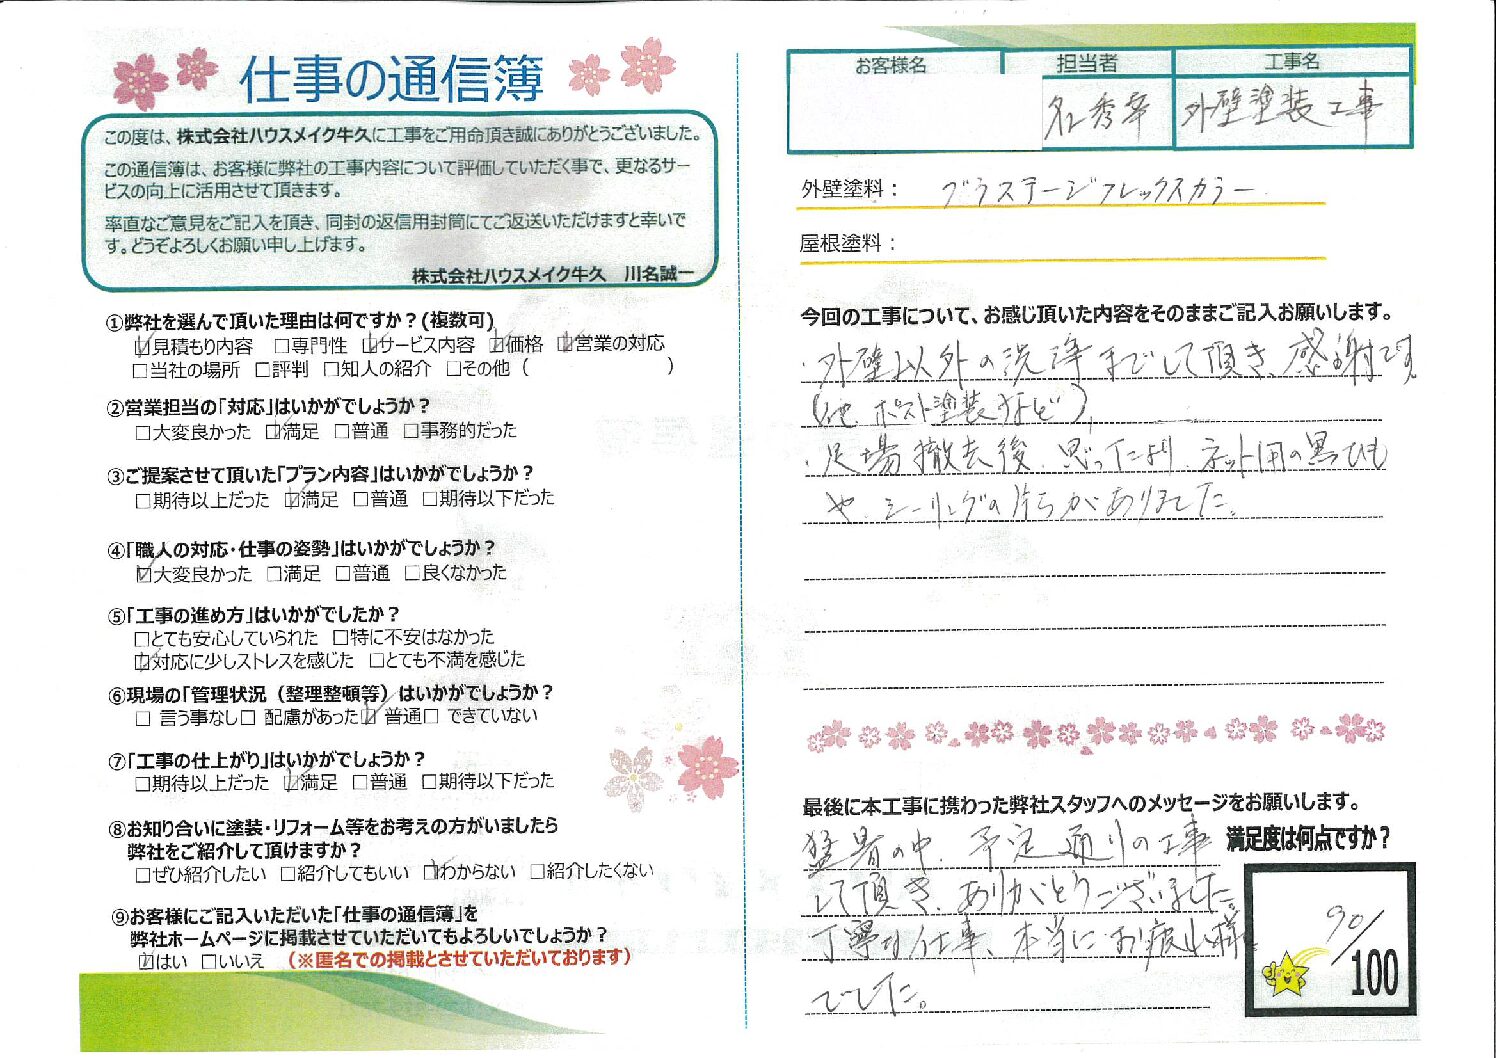 仕事の通信簿
この度は、株式会社ハウスメイク牛久に工事をご用命頂き誠にありがとうございました。
この通信簿は、お客様に弊社の工事内容について評価していただく事で、更なるサー
ビスの向上に活用させて頂きます。
率直なご意見をご記入を頂き、同封の返信用封筒にてご返送いただけますと幸いで
す。どうぞよろしくお願い申し上げます。
株式会社ハウスメイク牛久 川名誠一
①弊社を選んで頂いた理由は何ですか？(複数可)
☑見積もり内容 □専門性 ☑サービス内容 ☑価格 ☑営業の対応
□当社の場所 □評判 □知人の紹介 □その他（ ）
②営業担当の「対応」はいかがでしょうか？
□大変良かった ☑満足 □普通 □事務的だった
③ご提案させて頂いた「プラン内容」はいかがでしょうか？
□期待以上だった ☑満足 □普通 □期待以下だった
④「職人の対応・仕事の姿勢」はいかがでしょうか？
☑大変良かった □満足 □普通 □良くなかった
⑤「工事の進め方」はいかがでしたか？
□とても安心していられた □特に不安はなかった
☑対応に少しストレスを感じた □とても不満を感じた
⑥現場の「管理状況（整理整頓等）はいかがでしょうか？
□ 言う事なし□ 配慮があった☑ 普通□ できていない
⑦「工事の仕上がり」はいかがでしょうか？
□期待以上だった ☑満足 □普通 □期待以下だった
⑧お知り合いに塗装・リフォーム等をお考えの方がいましたら
弊社をご紹介して頂けますか？
□ぜひ紹介したい □紹介してもいい ☑わからない □紹介したくない
⑨お客様にご記入いただいた「仕事の通信簿」を
弊社ホームページに掲載させていただいてもよろしいでしょうか？
☑はい □いいえ （※匿名での掲載とさせていただいております）
お客様名 担当者 工事名
秀幸 外壁塗装工事
外壁塗料： グラステージフレックスカラー
屋根塗料：
今回の工事について、お感じ頂いた内容をそのままご記入お願いします。
・外壁以外の洗浄までして頂き、感謝です。
（他、ポスト塗装など）
・足場撤去後、思ったより、ネット用の黒ひも
や、シーリングの片らがありました。
最後に本工事に携わった弊社スタッフへのメッセージをお願いします。
猛暑の中、予定通りの工事
して頂き、ありがとうございました。
丁寧な仕事、本当にお疲れ様
でした。
満足度は何点ですか？
90/
100